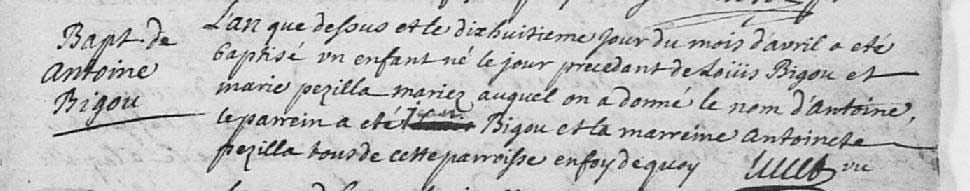 Bapt. de
Antoine
Bigou
L'an que dessus et le dixhuitieme jour du mois d'avril a eté
baptisé vn enfant né le jour precedant de Loüis Bigou et
marie pezilla mariez auquel on a donné le nom d'Antoine,
le parrein a eté jean Bigou et la marreine Antoinete
pezilla tous de cette parroisse en foy de quoy